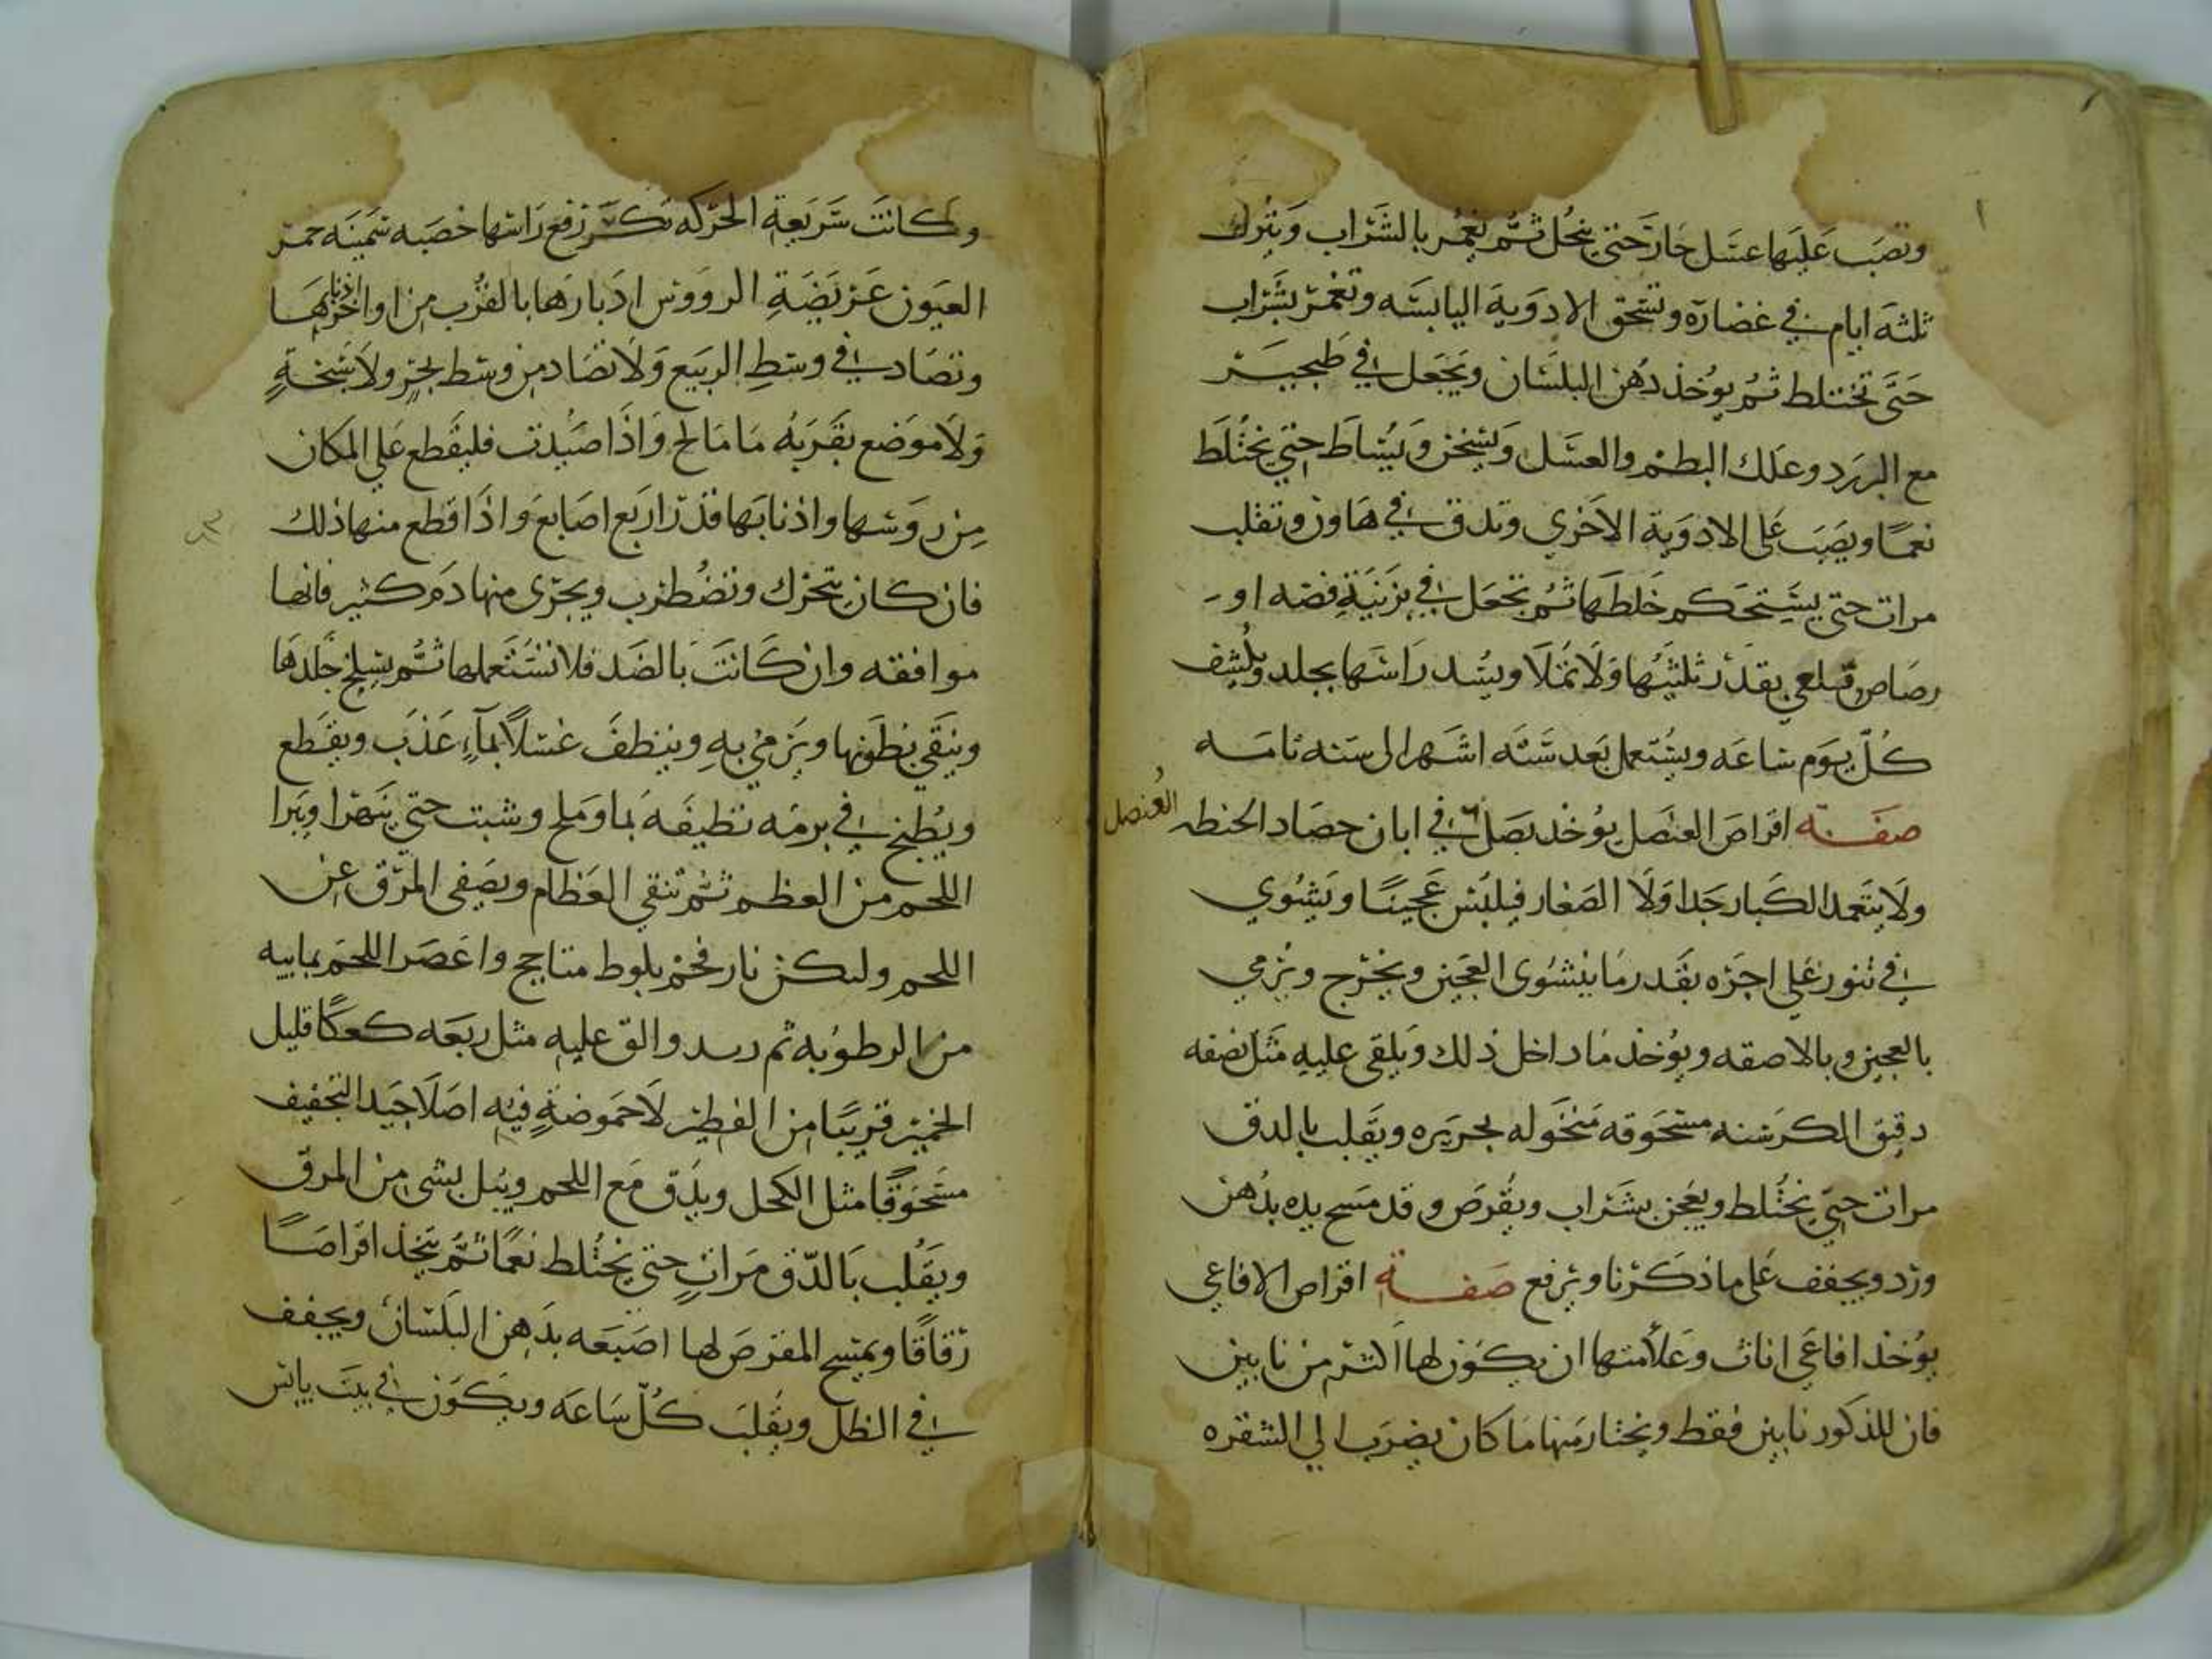 وتصب عليها عسل حار حتى ينحل ثم تغمر بالشراب ويترك
ثلثة ايام في غضارة وتسحق الادوية اليابسه وتغمر بشراب
حتى تختلط ثم يوخذ دهن البلسان ويجعل في طنجير
مع البرزد وعلك البطم والعسل ويسخن ويساط حتى يختلط
نعما ويصب على الادوية الاخرى وتدق في هاون وتقلب
مرات حتى يستحكم خلطها ثم تجعل في برنية فضه او
رصاص قلعي بقدر ثلثيها ولا تملا ويشد راسها بجلد ويكشف
كل يوم ساعه ويستعمل بعد سته اشهر الى سنه تامه
صفة اقراص العنصل يوخذ بصل في ابان حصاد الحنطه
العنصل
ولا يتعمد الكبار جدا ولا الصغار فيلبس عجينا ويشوي
في تنور على اجره بقدر ما ينشوى العجين ويخرج ويرمي
بالعجين وبالاصقه ويوخذ ما داخل ذلك ويلقى عليه مثل نصفه
دقيق الكرسنه مسحوقه منخوله بحريره ويقلب بالدق
مرات حتى يختلط ويعجن بشراب ويقرص وقد مسح يده بدهن
ورد ويجفف على ما ذكرنا ويرفع صفة اقراص الافاعي
يوخذ افاعي اناث وعلامتها ان يكون لها اكثر من نابين
فان للذكور نابين فقط ويختار منها ما كان يضرب الى الشقره
وكانت سريعة الحركه تكثر رفع راسها خصبه سمينه حمر
العيون عريضة الرووس ادبارها بالقرب من اواخرها
اذنابها
وتصاد في وسط الربيع ولا تصاد من وسط بحر ولا سبخة
ولا موضع بقربه ما مالح واذا صيدت فليقطع على المكان
من روسها واذنابها قدر اربع اصابع واذا قطع منها ذلك
فان كان يتحرك وتضطرب ويجرى منها دم كثير فانها
موافقه وان كانت بالضد فلا تستعملها ثم يسلخ جلدها
وينقى بطونها ويرمي به وينظف غسلا بماء عذب ويقطع
ويطبخ في برمه نظيفه بما وملح وشبت حتى يتهرا ويبرا
اللحم من العظم ثم تنقي العظام ويصفى المرق عن
اللحم ولتكن نار فحم بلوط متاجج واعصر اللحم بما بيه
من الرطوبه ثم والق عليه مثل ربعه كعكا قليل
الخمير قريبا من الفطير لا حموضة فيه اصلا جيد التجفيف
مسحوقا مثل الكحل ويدق مع اللحم ويبل بشي من المرق
ويقلب بالدق مرات حتى يختلط نعما ثم يتخذ اقراصا
رقاقا ويمسح المقرص لها اصبعه بدهن البلسان ويجفف
في الظل ويقلب كل ساعه ويكون في بيت يابس